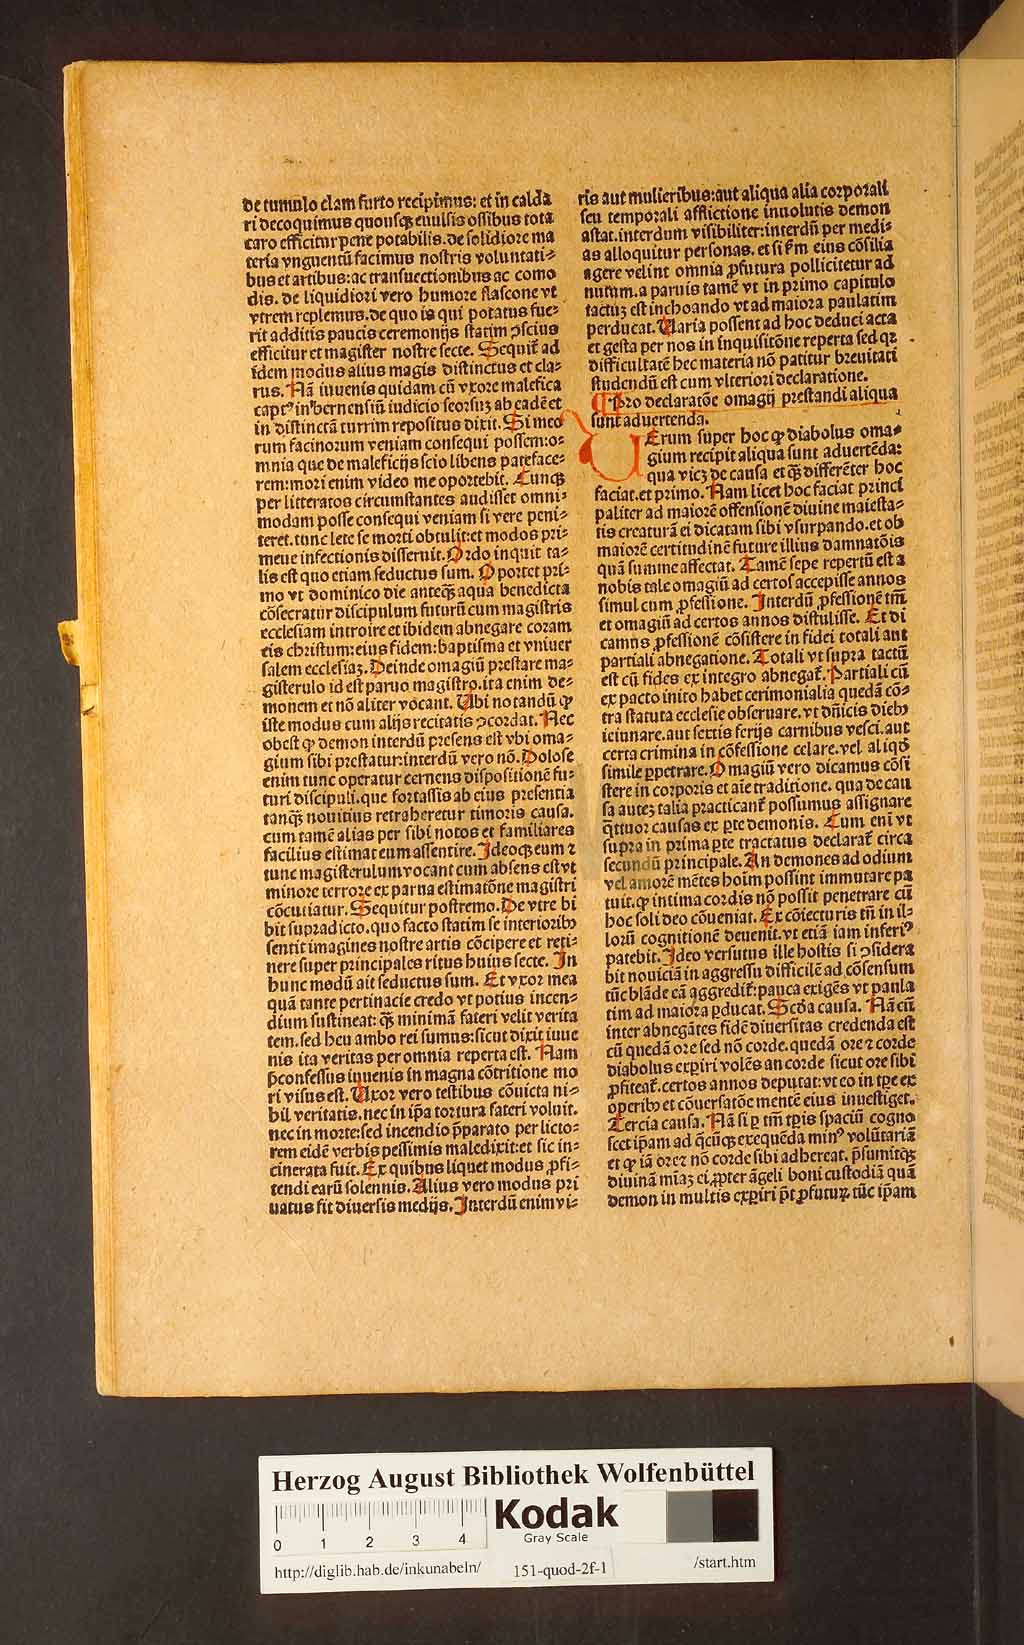 de tumulo clam furto recipimus: et in calda
ri decoquimus quousqꝫ euulsis ossibus tota
caro efficitur pene potabilis. de solidiore ma
teria vnguentū facimus nostris voluntati⸗
bus et artibus: ac transuectionibus ac como
dis. de liquidiori vero humore flascone vt
vtrem replemus. de quo is qui potatus fue⸗
rit additis paucis ceremonijs statim ꝯscius
efficitur et magister nostre secte. Sequit᷑ ad
idem modus alius magis distinctus et cla⸗
rus. Nā iuuenis quidam cū vxore malefica
captꝰ in bernensiū iudicio seorsuꝫ ab eadē et
in distinctā turrim repositus dixit. Si meo
rum facinorum veniam consequi possem: o⸗
mnia que de maleficijs scio libens pateface⸗
rem: mori enim video me oportebit. Cunqꝫ
per litteratos circumstantes audisset omni⸗
modam posse consequi veniam si vere peni⸗
teret. tunc lete se morti obtulit: et modos pri⸗
meue infectionis disseruit. Ordo inquit ta⸗
lis est quo etiam seductus sum. Oportet pri⸗
mo vt dominico die anteqꝫ aqua benedicta
cōsecratur discipulum futurū cum magistris
ecclesiam introire et ibidem abnegare coram
eis christum: eius fidem: baptisma et vniuer
salem ecclesiaꝫ. Deinde omagiū prestare ma⸗
gisterulo id est paruo magistro. ita enim de⸗
monem et nō aliter vocant. Ubi notandū ꝙ
iste modus cum alijs recitatis ꝯcordat. Nec
obest ꝙ demon interdū presens est vbi oma⸗
gium sibi prestatur: interdū vero nō. Dolose
enim tunc operatur cernens dispositionē fu⸗
turi discipuli. que fortassis ab eius presentia
tanqꝫ nouitius retraheretur timoris causa.
cum tamē alias per sibi notos et familiares
facilius estimat eum assentire. Ideoqꝫ eum ⁊
tunc magisterulum vocant cum absens est vt
minore terrore ex parua estimatōne magistri
cōcutiatur. Sequitur postremo. De vtre bi
bit supradicto. quo facto statim se interioribꝰ
sentit imagines nostre artis cōcipere et reti⸗
nere super principales ritus huius secte. In
hunc modū ait seductus sum. Et vxor mea
quā tante pertinacie credo vt potius incen⸗
dium sustineat: qꝫ minimā fateri velit verita
tem. sed heu ambo rei sumus: sicut dixit iuue
nis ita veritas per omnia reperta est. Nam
p̄confessus iuuenis in magna cōtritione mo
ri visus est. Uxor vero testibus cōuicta ni⸗
hil veritatis. nec in ip̄a tortura fateri voluit.
nec in morte: sed incendio p̄parato per licto⸗
rem eidē verbis pessimis maledixit: et sic in⸗
cinerata fuit. Ex quibus liquet modus ꝓfi⸗
tendi earū solennis. Alius vero modus pri
uatus fit diuersis medijs. Interdū enim vi⸗
ris aut mulieribus: aut aliqua alia corporali
seu temporali afflictione inuolutis demon
astat. interdum visibiliter: interdū per medi⸗
as alloquitur personas. et si ẜm eius cōsilia
agere velint omnia ꝓfutura pollicitetur ad
nutum. a paruis tamē vt in primo capitulo
tactuꝫ est inchoando vt ad maiora paulatim
perducat. Varia possent ad hoc deduci acta
et gesta per nos in inquisitōne reperta sed qꝛ
difficultatē hec materia nō patitur breuitati
studendū est cum vlteriori declaratione.
¶ Pro declaratōe omagij prestandi aliqua
sunt aduertenda.
Uerum super hoc ꝙ diabolus oma⸗
gium recipit aliqua sunt aduertēda:
qua vicꝫ de causa et qꝫ differēter hoc
faciat. et primo. Nam licet hoc faciat princi
paliter ad maiorē offensionē diuine maiesta⸗
tis creaturā ei dicatam sibi vsurpando. et ob
maiorē certitudinē future illius damnatōis
quā summe affectat. Tamē sepe repertū est a
nobis tale omagiū ad certos accepisse annos
simul cum ꝓfessione. Interdū ꝓfessionē tm̄
et omagiū ad certos annos distulisse. Et di
camus ꝓfessionē cōsistere in fidei totali aut
partiali abnegatione. Totali vt supra tactū
est cū fides ex integro abnegat᷑. Partiali cū
ex pacto inito habet cerimonialia quedā cō⸗
tra statuta ecclesie obseruare. vt dn̄icis diebꝰ
ieiunare. aut sextis ferijs carnibus vesci. aut
certa crimina in cōfessione celare. vel aliqō
simile ꝑpetrare. Omagiū vero dicamus cōsi
stere in corporis et aīe traditione. qua de cau
sa auteꝫ talia practicant᷑ possumus assignare
q̄ttuor causas ex ꝑte demonis. Cum eni vt
supra in prima ꝑte tractatus declarat᷑ circa
secundū principale. An demones ad odium
vel amorē mētes hoīm possint immutare pa
tuit. ꝙ intima cordis nō possit penetrare cū
hoc soli deo cōueniat. Ex cōiecturis tn̄ in il⸗
lorū cognitionē deuenit. vt etiā iam inferiꝰ
patebit. Ideo versutus ille hostis si ꝯsidera
bit nouiciā in aggressu difficilē ad cōsensum
tūc blāde eā aggredit᷑: pauca exigēs vt paula
tim ad maiora ꝑducat. Scd̄a causa. Nā cū
inter abnegātes fidē diuersitas credenda est
cū quedā ore sed nō corde. quedā ore ⁊ corde
diabolus exꝑiri volēs an corde sicut ore sibi
ꝓfiteat᷑. certos annos deputat: vt eo in tp̄e ex
operibꝰ et cōuersatōe mentē eius inuestiget.
Tercia causa. Nā si ꝑ tm̄ tp̄is spaciū cogno
scet ip̄am ad q̄cūqꝫ exequēda minꝰ volūtariā
et ꝙ iā ore ⁊ nō corde sibi adhereat. p̄sumitqꝫ
diuinā mīaꝫ ei ꝓpter āgeli boni custodiā quā
demon in multis exꝑiri pōt ꝓfuturꝫ. tūc ip̄am
Herzog August Bibliothek Wolfenbüttel
0 1 2 3 4
Kodak
Gray Scale
http://diglib.hab.de/inkunabeln/ 151-quod-2f-1 /start.htm